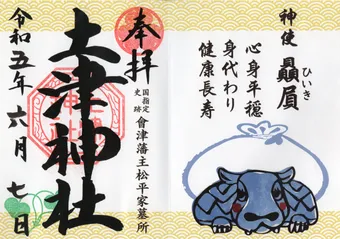 奉拝
国指定史跡
會津藩主松平家墓所
土津神社
令和五年六月七日
神使
贔屓
ひいき
心身平穏
身代わり
健康長寿